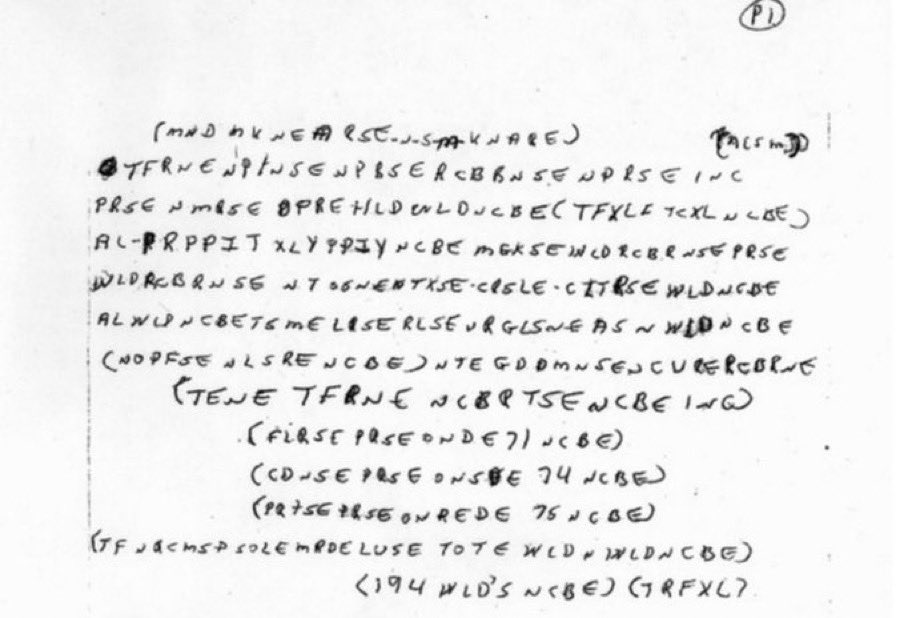 P1
(MND MKNEARSE-N-S-M-KNARE) (ACSM)
TFRNE NPINSENPBSERCBBRNSE NPRSE INC
PRSE NMRSE OPREHLD WLD NCBE (TFXLF TCXL NCBE)
AL-PRPPIT XLY PPIY NCBE MGKSE WLDRCBRNSE PRSE
WLDRCBRNSE NTSSNENTXSE-CRSLE-CITRSE WLDNCBE
ALWLPNCBETSMELRSERLSEURGLSNEASN WLDNCBE
(NOPFSE NLSRE NCBE) NTEGDDMNSENCURERCBRNE
(TENE TFRNE NCBRTSENCBE ING)
(FLRSE PRSEONDE 71 NCBE)
(CDNSE PRSE ONSDE 74 NCBE)
(PRTSE PRSE ONREDE 75 NCBE)
(TF NRCMSP SOLE MRDELUSE TOTE WLDN WLDNCBE)
(194 WLD'S NCBE) (TRFXL)